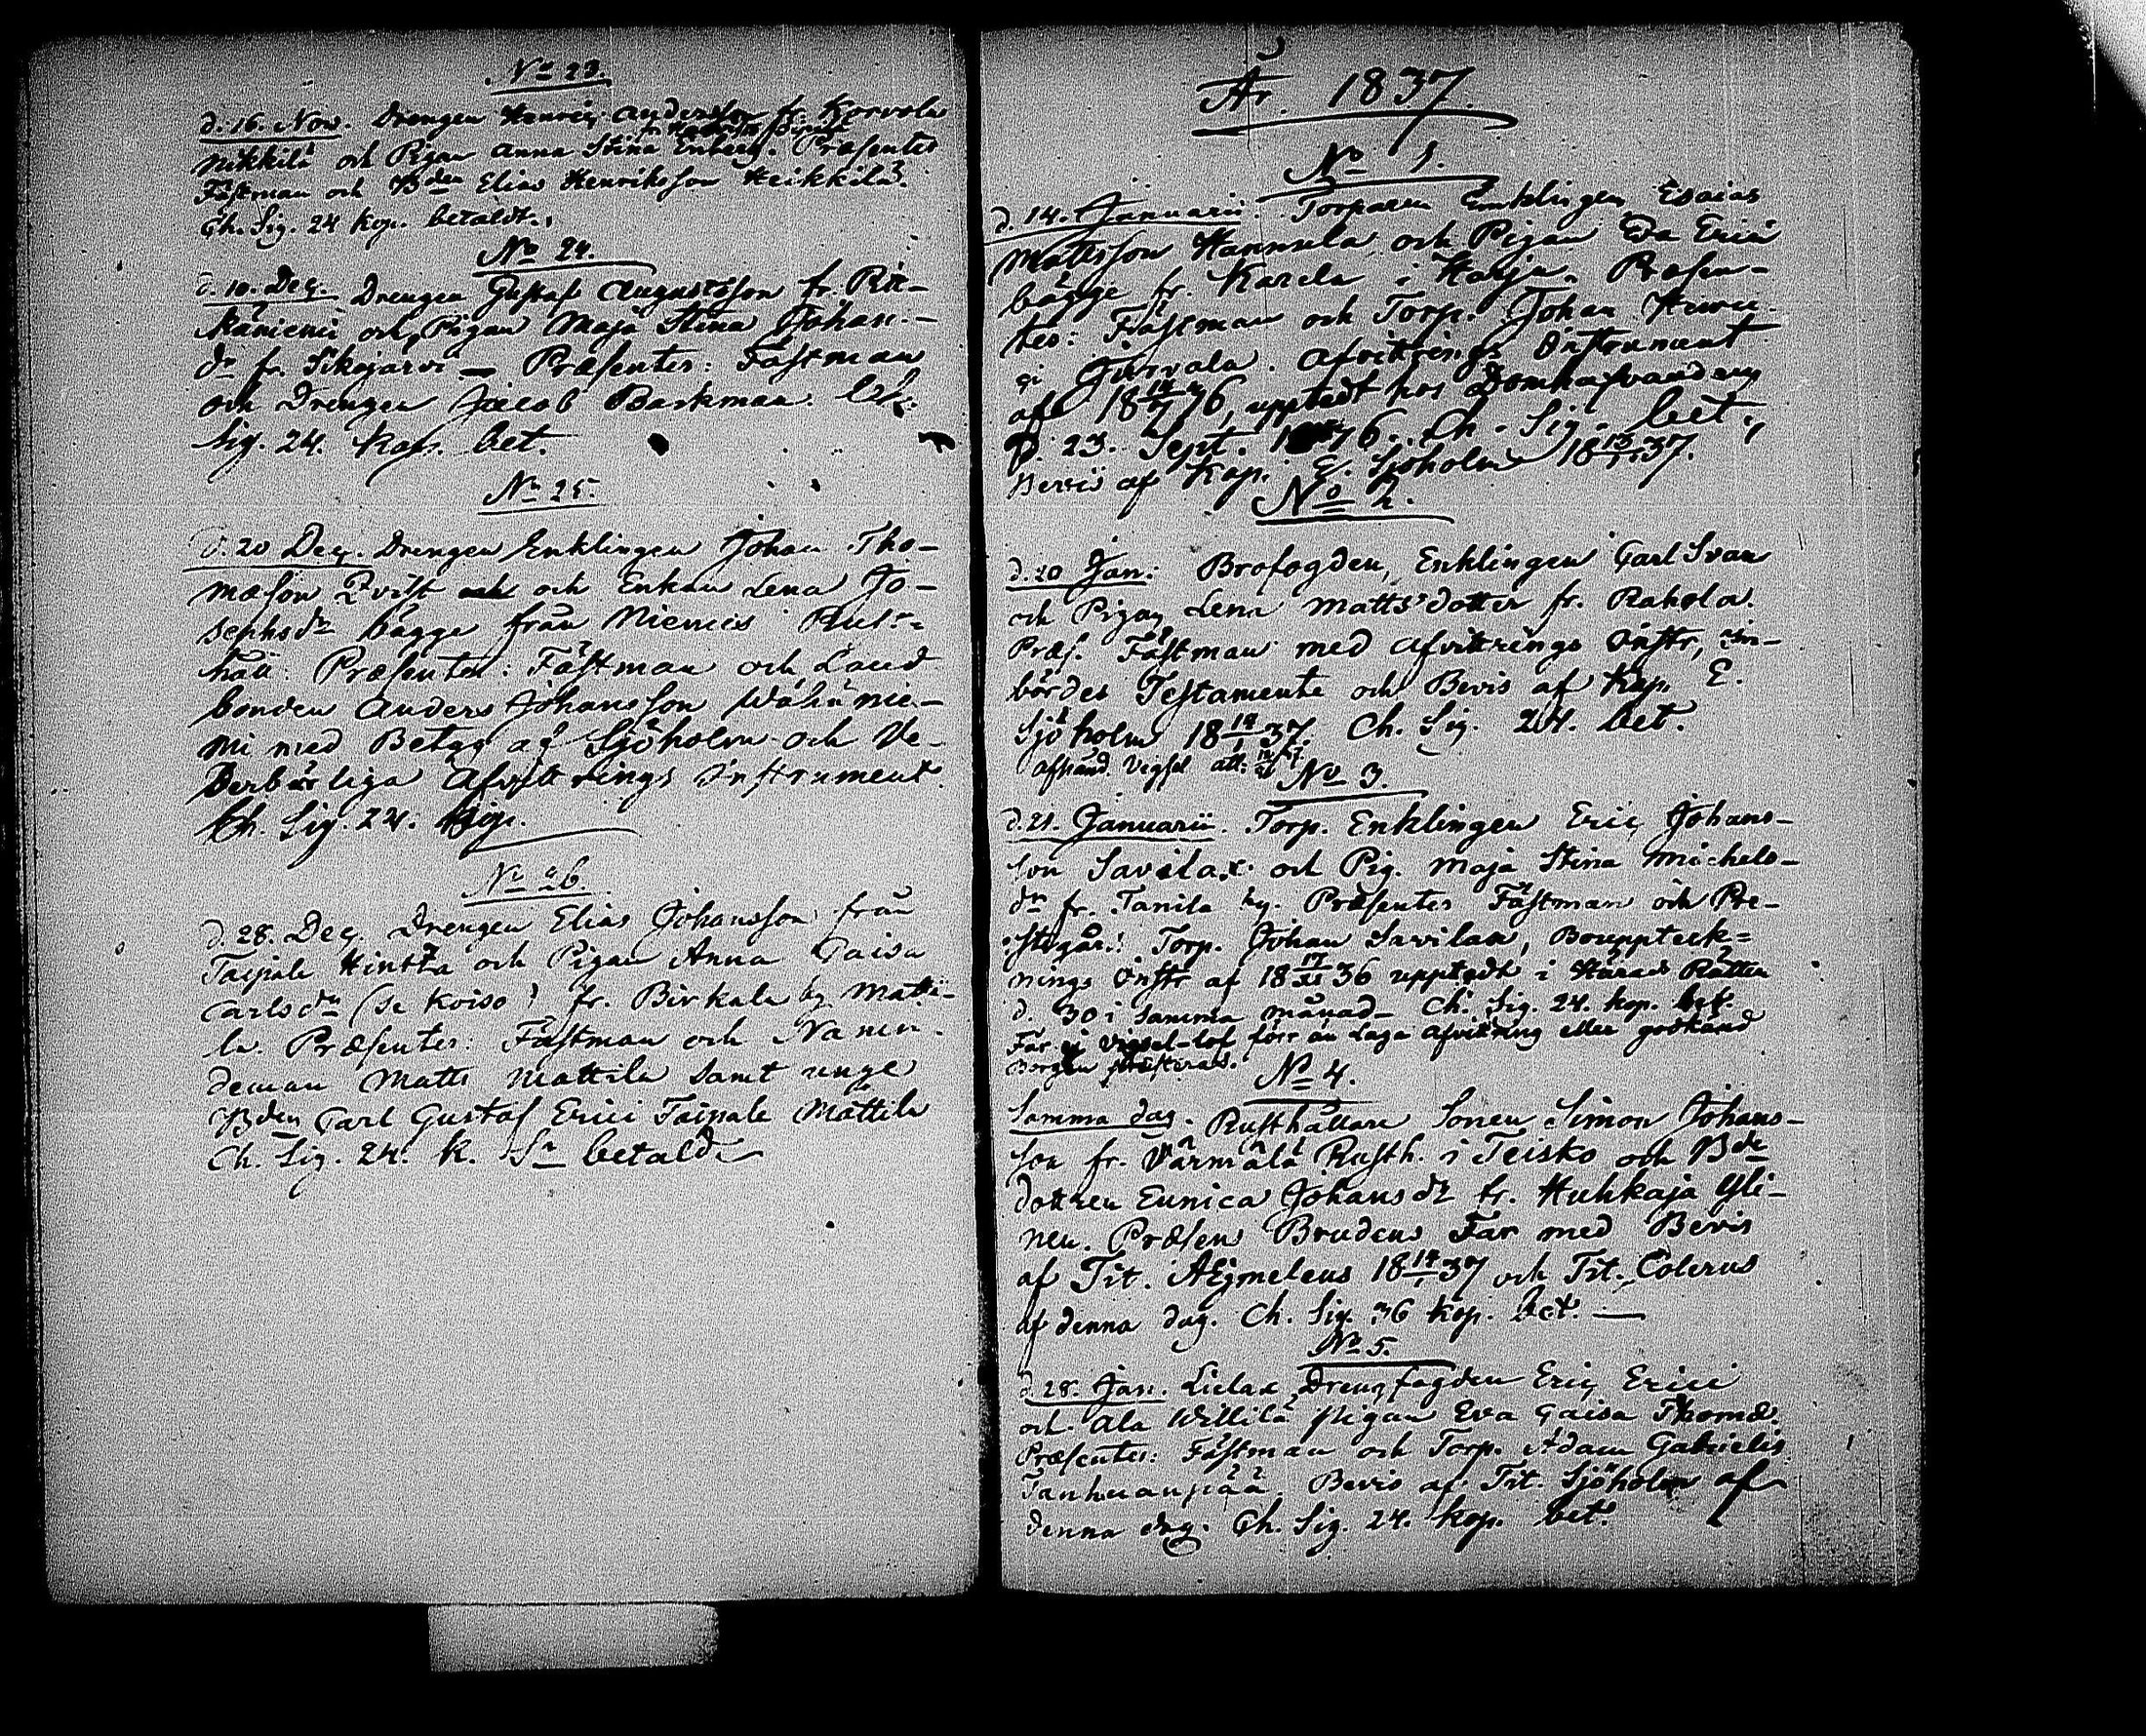 No 23.
d. 16. Nov. Drengen Henric Andersson fr. Korvola
Nikkilä och Pigan Anna Stina Enberg. Præsentes
Fästman och Bden Elias Henriksson Heikkilä.
Ch. Sig. 24 kop. betaldt.
No 24.
d. 10. Dec. Drengen Gustaf Augustsson fr. Pit-
käniemi och Pigan Maja Stina Johans-
dr fr. Sikojärvi — Præsentes: Fästman
och Drengen Jacob Backman. Ch.
Sig. 24. kop. bet.
No 25.
d. 20 Dec. Drengen Enklingen Johan Tho-
mæson Qvist och Enkan Lena Jo-
sephsdr bägge från Niemis Rust-
håll. Præsentes: Fästman och Land
bonden Anders Johansson Wähänie-
mi med Betyg af Sjöholm och Ve-
derbörliga Afvittrings Instrument.
Ch. Sig. 24. kop.
No 26.
d. 28. Dec. Drengen Elias Johansson från
Taipale Hintza och Pigan Anna Caisa
Carlsdr (se Koiso) fr. Birkala by Matti-
la. Præsentes: Fästman och Nämn-
deman Matts Mattila samt unge
Bden Carl Gustaf Erici Taipale Mattila
Ch. Sig. 24. k. Sr betald.
År 1837.
No 1.
d. 14. Januarii. Torparen Enklingen Esaias
Mattsson Hannula och Pigan Eva Erici
bägge fr. Karela i Harju. Præsen-
tes: Fästman och Torp. Johan Henri-
ci Jusvala. Afvittrings Instrument
af 18 36, upptedt hos Domhafvanden
d. 23. Sept. 1836. Ch. Sig. bet.
Bevis af Kap. E. Sjöholm 18 13/1 37.
No 2.
d. 20 Jan: Brofogden, Enklingen Carl Svan
och Pigan Lena Mattsdotter fr. Rahola.
Præs. Fästman med Afvittrings Instr, in-
bördes Testamente och Bevis af Kap. E.
Sjöholm 18 14/1 37. Ch. Sig. 24. bet.
No 3.
d. 21. Januarii. Torp. Enklingen Eric Johans-
son Savilax och Pig. Maja Stina Michels-
dr fr. Tanila by. Præsentes Fästman och Pre-
stgår: Torp. Johan Savilax, Bouppteck-
nings Instr af 18 36 upptedt i Härads Rätten
d. 30 i samma månad — Ch. Sig. 24. kop. bet.
Får ej vigsel-lof förr än Laga afvittring eller godkänd
Borgen præsterad.
No 4.
Samma dag. Rusthållare Sonen Simon Johans-
son fr. Värmälä Rusth. i Teisko och Bde
dottren Eunica Johansdr fr. Huhkaja Yli-
nen. Præsens Brudens Far med Bevis
af Tit. Aejmeleus 18 14/1 37 och Tit. Colerus
af denna dag. Ch. Sig. 36 kop. bet. —
No 5.
d. 28. Jan. Lielax Drengfogden Eric Erici
och Ala Willilä Pigan Eva Caisa Thomæ.
Præsentes: Fästman och Torp. Adam Gabrielis
Tanhuanpää. Bevis af Tit. Sjöholm af
denna dag. Ch. Sig. 24. kop. bet.